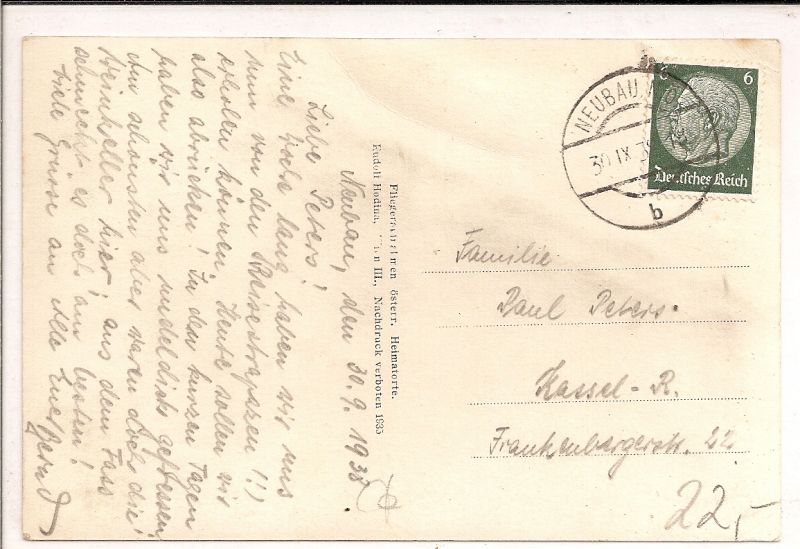 Neubau, den 30.9.1938.
Liebe Peters!
Eine Woche lang haben wir uns
nun von den Reisestrapazen (!!)
erholen können. Heute sollen wir
also abrücken! In den kurzen Tagen
haben wir uns nudeldick gefressen,
am schönsten aber waren doch die
Weinkeller hier; aus dem Fass
schmeckt es doch am besten!
Viele Grüsse an Alle Euer Bernd
Fliegeraufnahmen österr. Heimatorte.
Rudolf Hodina, Wien III., Nachdruck verboten 1935
6
Deutsches Reich
NEUBAU
30 IX 38
b
Familie
Paul Peters.
Kassel-R.
Frankenbergerstr. 22
22,-